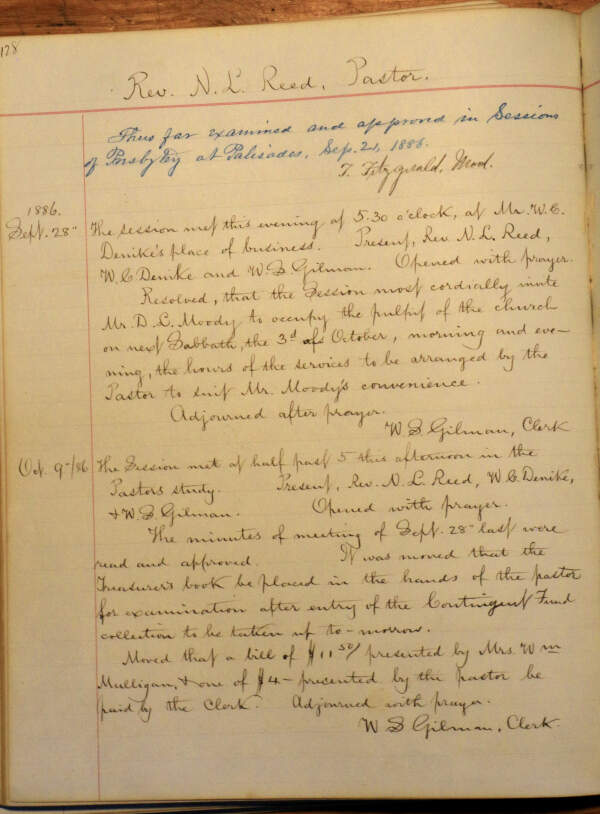 128
Rev. N. L. Reed, Pastor.
Thus far examined and approved in Sessions
of Presbytery at Palisades, Sep. 21, 1886.
T. Fitzgerald, Mod.
1886.
Sept. 28" The session met this evening at 5.30 o'clock, at Mr. W. C.
Denike's place of business. Present, Rev. N. L. Reed,
W. C. Denike and W. S. Gilman. Opened with prayer.
Resolved, that the Session most cordially invite
Mr. D. L. Moody to occupy the pulpit of the church
on next Sabbath, the 3d of October, morning and eve-
ning, the hours of the services to be arranged by the
Pastor to suit Mr. Moody's convenience.
Adjourned after prayer.
W. S. Gilman, Clerk
Oct. 9"/86 The Session met at half past 5 this afternoon in the
Pastors study. Present, Rev. N. L. Reed, W C. Denike,
& W. S. Gilman. Opened with prayer.
The minutes of meeting of Sept. 28" last were
read and approved. It was moved that the
Treasurer's book be placed in the hands of the pastor
for examination after entry of the Contingent Fund
collection to be taken up to-morrow.
Moved that a bill of $11 50/ presented by Mrs. Wm
Mulligan, & one of $4- presented by the pastor be
paid by the Clerk. Adjourned with prayer.
W S Gilman, Clerk.